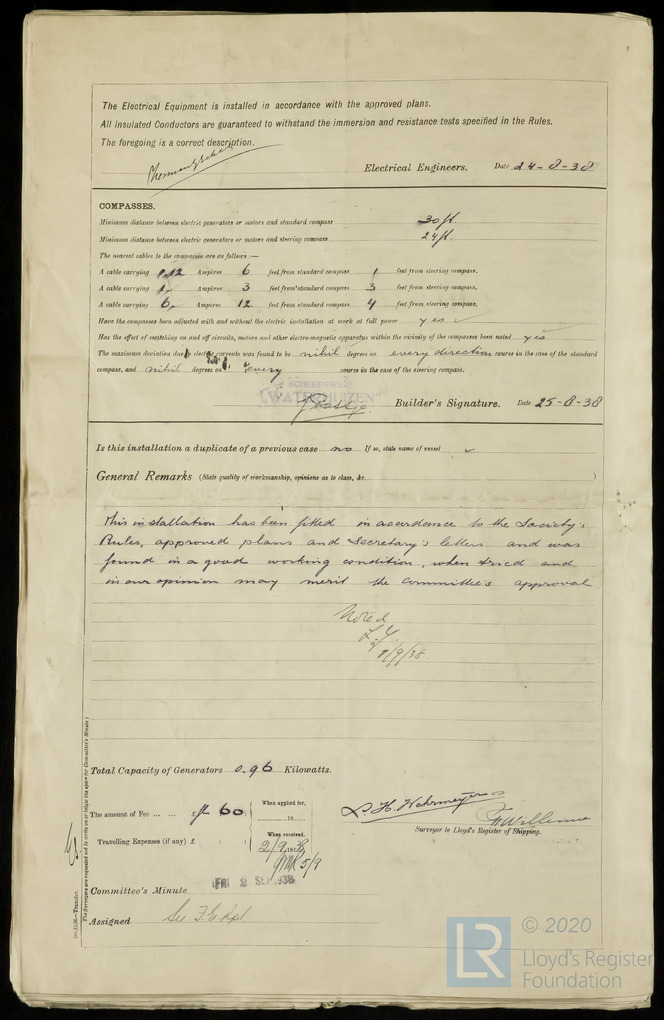 The Electrical Equipment is installed in accordance with the approved plans.
All Insulated Conductors are guaranteed to withstand the immersion and resistance tests specified in the Rules.
The foregoing is a correct description.
Electrical Engineers. Date 24-8-38
COMPASSES.
Minimum distance between electric generators or motors and standard compass 30 ft.
Minimum distance between electric generators or motors and steering compass 24 ft.
The nearest cables to the compasses are as follows:—
A cable carrying 0,12 Ampères 6 feet from standard compass 1 feet from steering compass.
A cable carrying 1, Ampères 3 feet from standard compass 3 feet from steering compass.
A cable carrying 6, Ampères 12 feet from standard compass 4 feet from steering compass.
Have the compasses been adjusted with and without the electric installation at work at full power yes
Has the effect of switching on and off circuits, motors and other electro-magnetic apparatus within the vicinity of the compasses been noted yes
The maximum deviation due to electric currents was found to be nihil degrees on every direction course in the case of the standard
compass, and nihil degrees on every course in the case of the steering compass.
SCHEEPSWERF
WATERHUIZEN
Builder's Signature. Date 25-8-38
Is this installation a duplicate of a previous case no If so, state name of vessel
General Remarks (State quality of workmanship, opinions as to class, &c. )
This installation has been fitted in accordance to the Society's
Rules, approved plans and Secretary's letters and was
found in a good working condition, when tried and
in our opinion may merit the Committee's approval
Noted
9/9/38
Total Capacity of Generators 0.96 Kilowatts.
The amount of Fee ... ... fl 60: When applied for,
19
Travelling Expenses (if any) £ : : When received.
2/9 1938
5/9
Surveyor to Lloyd's Register of Shipping.
Committee's Minute FRI 2 SEP 1938
Assigned See F.E. Rpt.
(The Surveyors are requested not to write on or below the space for Committee's Minute.)
Transfer.
© 2020
LR
Lloyd's Register
Foundation